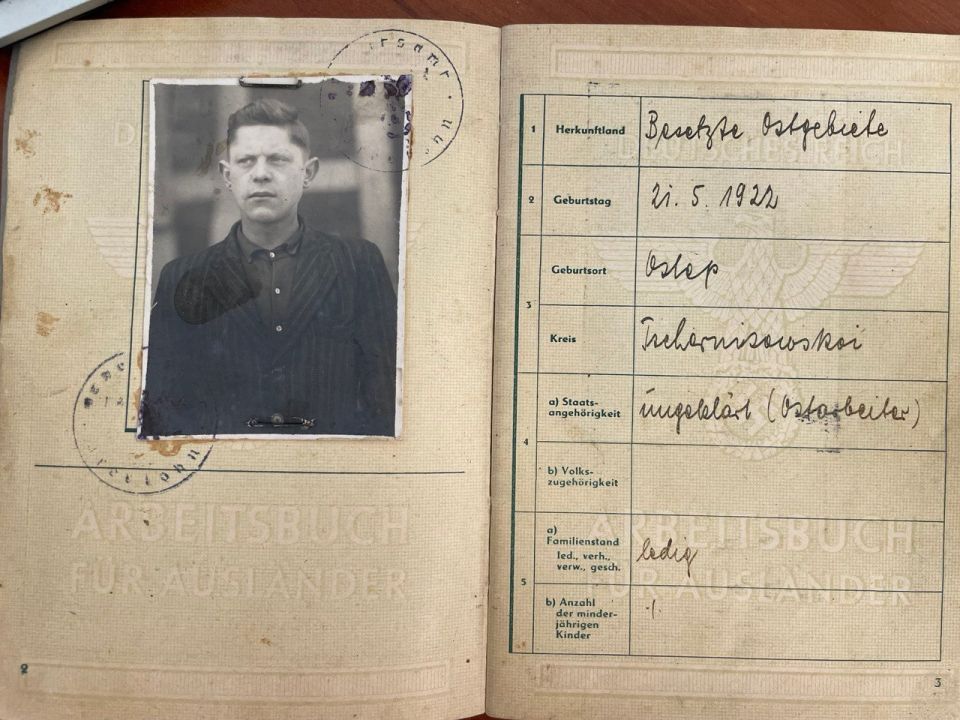 ARBEITSBUCH
FÜR AUSLÄNDER
2
DEUTSCHES REICH
1 Herkunftland Besetzte Ostgebiete
2 Geburtstag 21. 5. 1922
3 Geburtsort Ostap
Kreis Tschernikowskoi
4 a) Staats-
angehörigkeit ungeklärt (Ostarbeiter)
b) Volks-
zugehörigkeit
5 a)
Familienstand ledig
led., verh.,
verw., gesch.
b) Anzahl
der minder-
jährigen
Kinder
ARBEITSBUCH
FÜR AUSLÄNDER
3